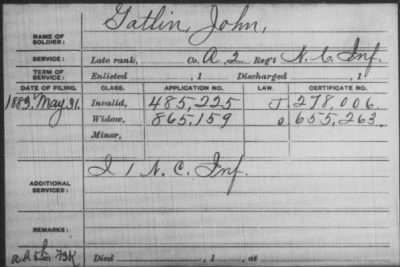 NAME OF SOLDIER: Gatlin, John,
SERVICE: Late rank, Co. A, 2 Reg't N. C. Inf.
TERM OF SERVICE: Enlisted , 1 Discharged , 1
DATE OF FILING. CLASS. APPLICATION NO. LAW. CERTIFICATE NO.
1883, May 31. Invalid, 485,225 J. 278,006.
Widow, 865,159 655,263.
Minor,
ADDITIONAL SERVICES: I 1 N. C. Inf.
REMARKS:
Died , 1 , at